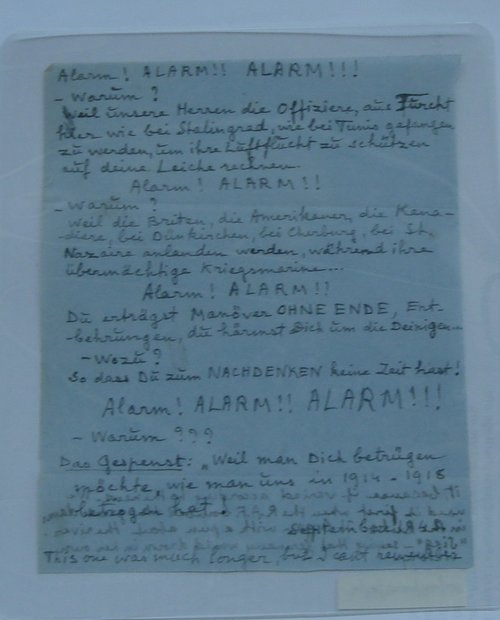 Alarm! ALARM!! ALARM!!!
- Warum?
Weil unsere Herren die Offiziere, aus Furcht
hier wie bei Stalingrad, wie bei Tunis gefangen
zu werden, um ihre Luftflucht zu schützen
auf deine Leiche rechnen.
Alarm! ALARM!!
- Warum?
Weil die Briten, die Amerikaner, die Kana-
diere, bei Dünkirchen, bei Cherburg, bei St.
Nazaire anlanden werden, während ihre
übermächtige Kriegsmarine...
Alarm! ALARM!!
Du erträgst Manöver OHNE ENDE, Ent-
-behrungen, du härmst Dich um die Deinigen...
- Wozu?
So dass Du zum NACHDENKEN keine Zeit hast!
Alarm! ALARM!! ALARM!!!
- Warum ???
Das Gespenst: "Weil man Dich betrügen
möchte, wie man uns in 1914-1918
betrogen hat."
This one was much longer, but I can't remember